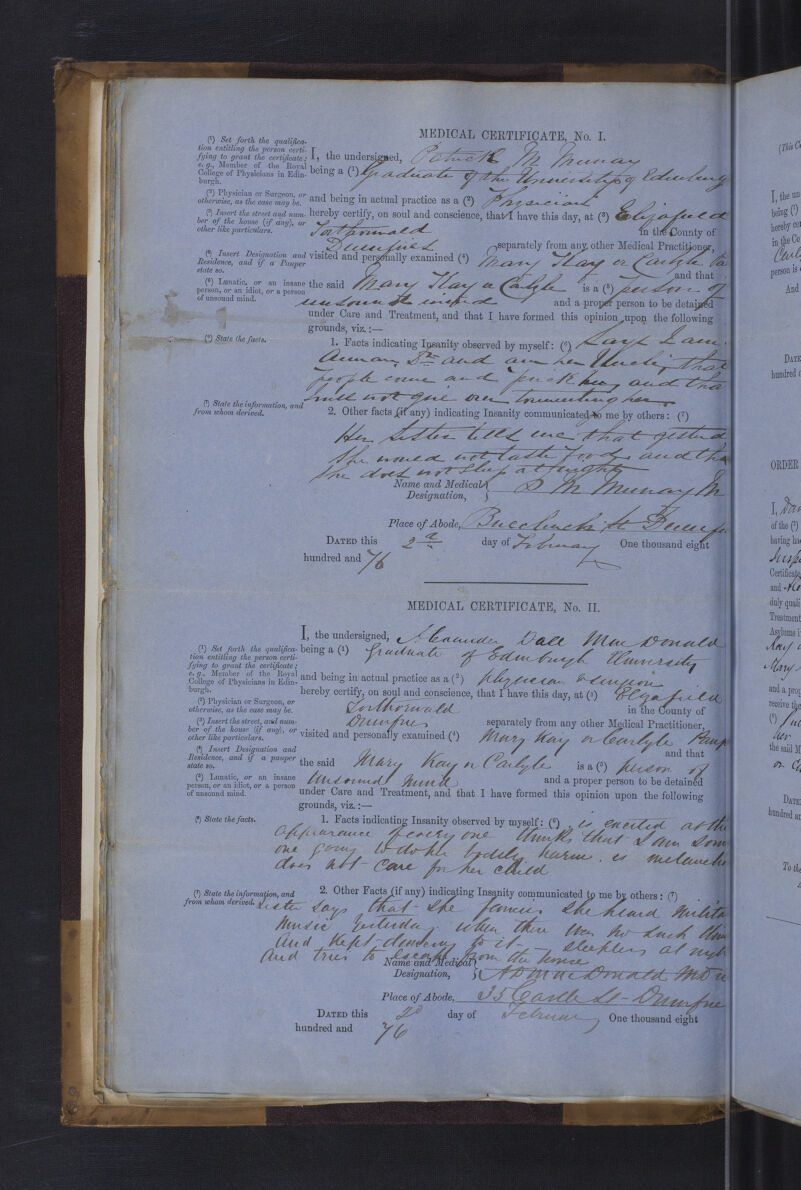 MEDICAL CERTIFICATE, No. I.
(¹) Set forth the qualifica-
tion entitling the person certi-
fying to grant the certificate;
e. g., Member of the Royal
College of Physicians in Edin-
burgh.
I, the undersigned, Patrick M Murray
being a (¹) Graduate of the University of Edinburg
(²) Physician or Surgeon, or
otherwise, as the case may be.
and being in actual practice as a (²) Physician
(³) Insert the street and num-
ber of the house (if any), or
other like particulars.
hereby certify, on soul and conscience, that I have this day, at (³) Elizafield
Torthorwald in the County of
Dumfries separately from any other Medical Practitioner,
(⁴) Insert Designation and
Residence, and if a Pauper
state so.
visited and personally examined (⁴) Mary Kay or Carlyle
and that
(⁵) Lunatic, or an insane
person, or an idiot, or a person
of unsound mind.
the said Mary Kay or Carlyle is a (⁵) person of
unsound mind and a proper person to be detained
under Care and Treatment, and that I have formed this opinion upon the following
grounds, viz.:—
(⁶) State the facts.
1. Facts indicating Insanity observed by myself: (⁶) Says I am
Annan Dr and am her Uncle, that
people come and prick her, and tha
will not give over tormenting her.
(⁷) State the information, and
from whom derived.
2. Other facts (if any) indicating Insanity communicated to me by others: (⁷)
Her Sister tells me that yesterd
she would not taste food, and tha
she does not sleep at night
Name and Medical
Designation, P M Murray M
Place of Abode, Buccleuch St Dumfr
DATED this 2d day of February One thousand eight
hundred and 76
MEDICAL CERTIFICATE, No. II.
I, the undersigned, Alexander Dale MacDonald
(¹) Set forth the qualifica-
tion entitling the person certi-
fying to grant the certificate;
e. g., Member of the Royal
College of Physicians in Edin-
burgh.
being a (¹) Graduate of Edinburgh University
and being in actual practice as a (²) physician & surgeon
(²) Physician or Surgeon, or
otherwise, as the case may be.
hereby certify, on soul and conscience, that I have this day, at (³) Elizafield
Torthorwald in the County of
(³) Insert the street, and num-
ber of the house (if any), or
other like particulars.
Dumfries separately from any other Medical Practitioner,
visited and personally examined (⁴) Mary Kay or Carlyle Paup
(⁴) Insert Designation and
Residence, and if a pauper
state so.
and that
the said Mary Kay or Carlyle is a (⁵) person of
(⁵) Lunatic, or an insane
person, or an idiot, or a person
of unsound mind.
Unsound Mind and a proper person to be detained
under Care and Treatment, and that I have formed this opinion upon the following
grounds, viz.:—
(⁶) State the facts.
1. Facts indicating Insanity observed by myself: (⁶) is excited at the
appearance of every one thinks that I am som
one going to do her bodily harm. is melancho
does not care for her child
(⁷) State the information, and
from whom derived.
2. Other Facts (if any) indicating Insanity communicated to me by others: (⁷)
Sister says that she fancies she heard milita
music yesterday when there was no such thin
and kept dancing to it – sleepless at nigh
and tries to escape from the house
Name and Medical
Designation, A D MacDonald MD
Place of Abode, 35 Castle St – Dumfrie
DATED this 2d day of February One thousand eight
hundred and 76
(This C
I, the un
being (¹)
hereby cer
in the Co
Carly
person is
And
DATE
hundred a
ORDER
I,
of the (¹)
having ha
Certificate
and
duly quali
Treatment
Asylums i
Kay
Mary
and a prop
receive the
her
the said M
or C
DATE
hundred an
To the